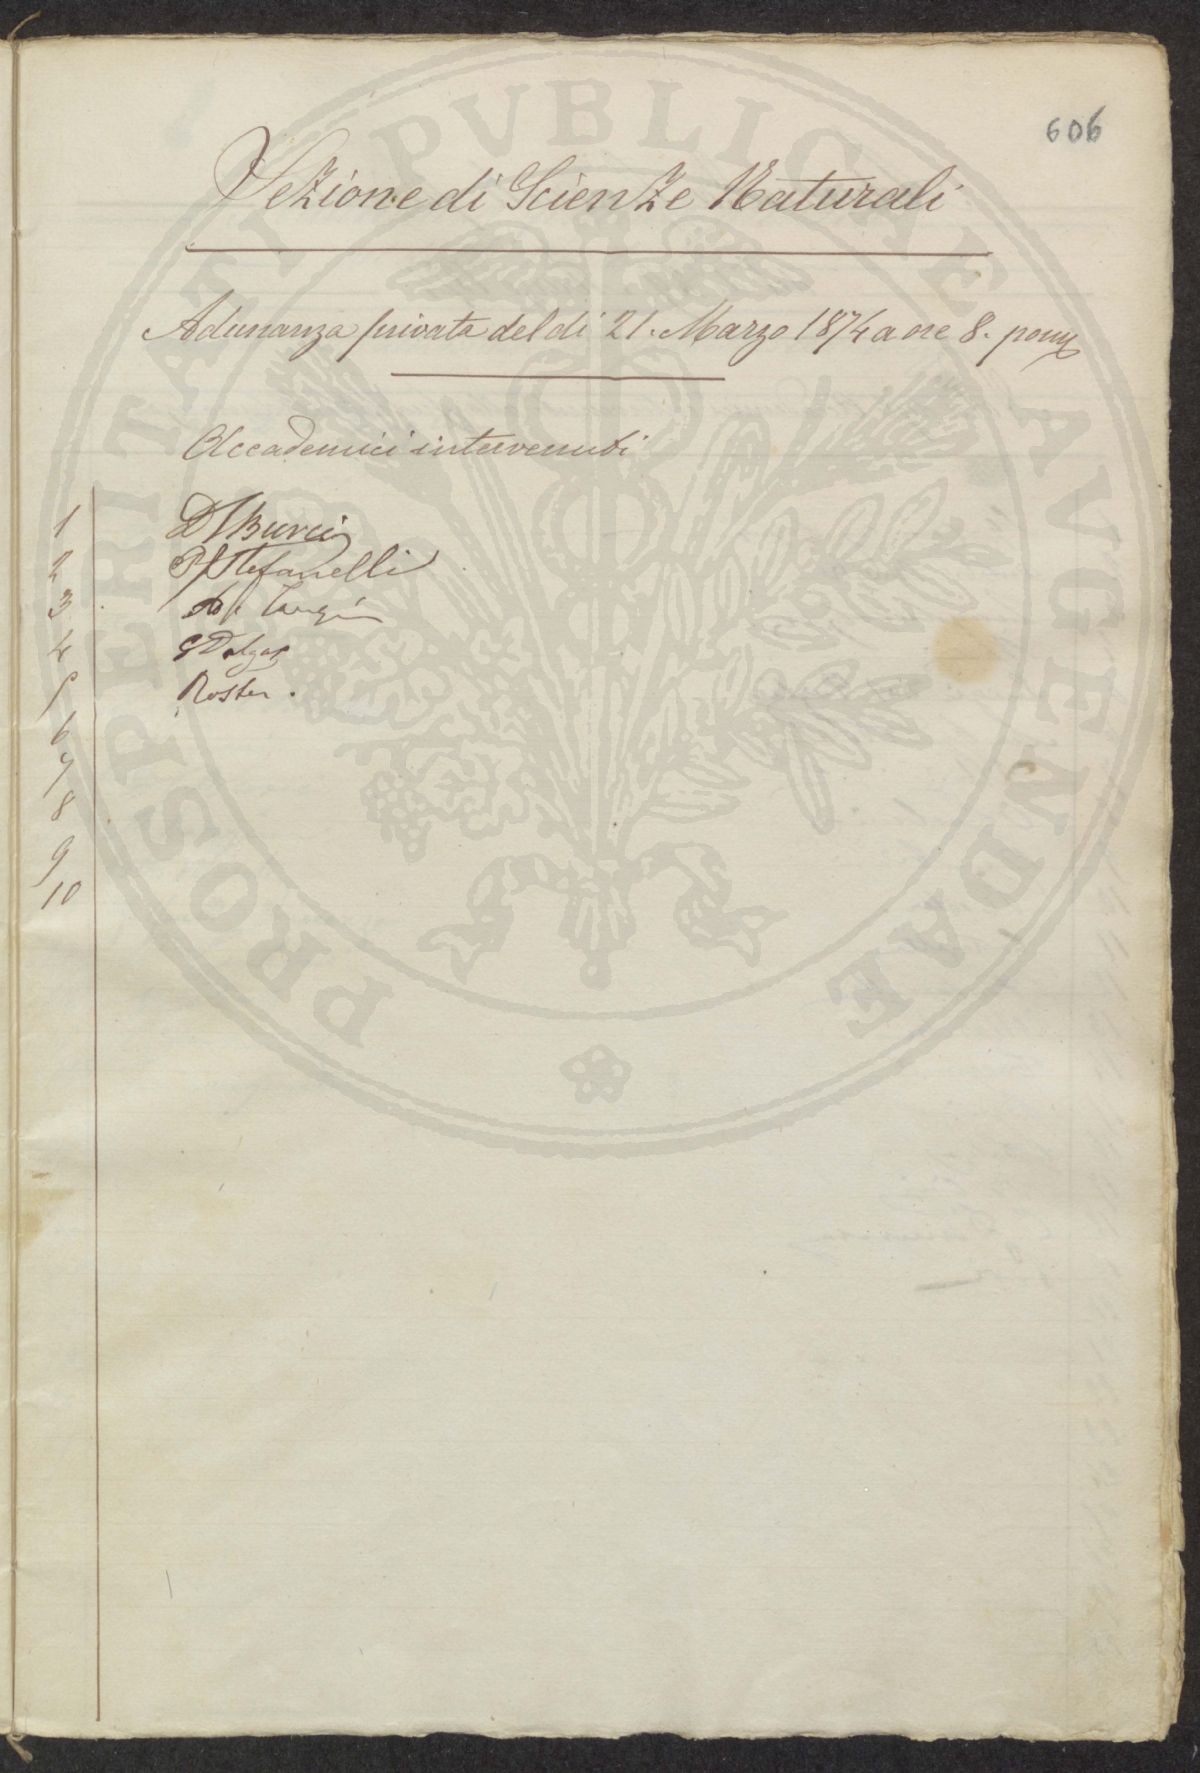 606
Sezione di Scienze Naturali
Adunanza privata del dì 21. Marzo 1874 a ore 8. pom
Accademici intervenuti
1 Burci
2 P Stefanelli
3
4
5 Roster.
6
7
8
9
10
PROSPERITATI PVBLICAE AVGENDAE